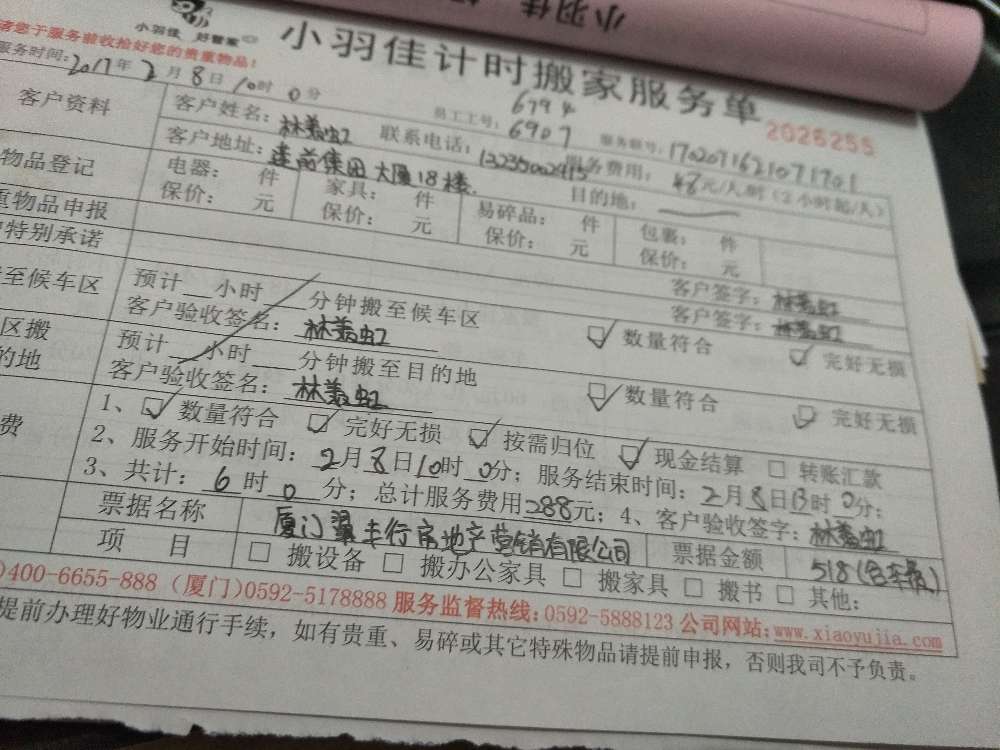 小羽佳
小羽佳 好管家
小羽佳计时搬家服务单
请您于服务前收拾好您的贵重物品！
2026255
服务时间：2017年2月8日10时0分
员工工号：6794 6907
服务联号：1702071621071701
客户资料
客户姓名：林美虹
联系电话：13235002915
服务费用：48元/人/时（2小时起/人）
客户地址：建前集团大厦18楼
目的地：
物品登记
电器： 件 家具： 件 易碎品： 件 包裹： 件
保价： 元 保价： 元 保价： 元 保价： 元
重物品申报
客户签字：林美虹
特别承诺
客户签字：林美虹
至候车区
预计 小时 分钟搬至候车区
客户验收签名：林美虹 数量符合 完好无损
区搬
的地
预计 小时 分钟搬至目的地
客户验收签名：林美虹 数量符合 完好无损
费
1、数量符合 完好无损 按需归位 现金结算 转账汇款
2、服务开始时间：2月8日10时0分；服务结束时间：2月8日13时0分；
3、共计：6时0分；总计服务费用288元；4、客户验收签字：林美虹
票据名称 厦门翼丰行房地产营销有限公司 票据金额 518(含车费)
项 目 搬设备 搬办公家具 搬家具 搬书 其他：
)400-6655-888（厦门)0592-5178888 服务监督热线：0592-5888123 公司网站：www.xiaoyujia.com
提前办理好物业通行手续，如有贵重、易碎或其它特殊物品请提前申报，否则我司不予负责。